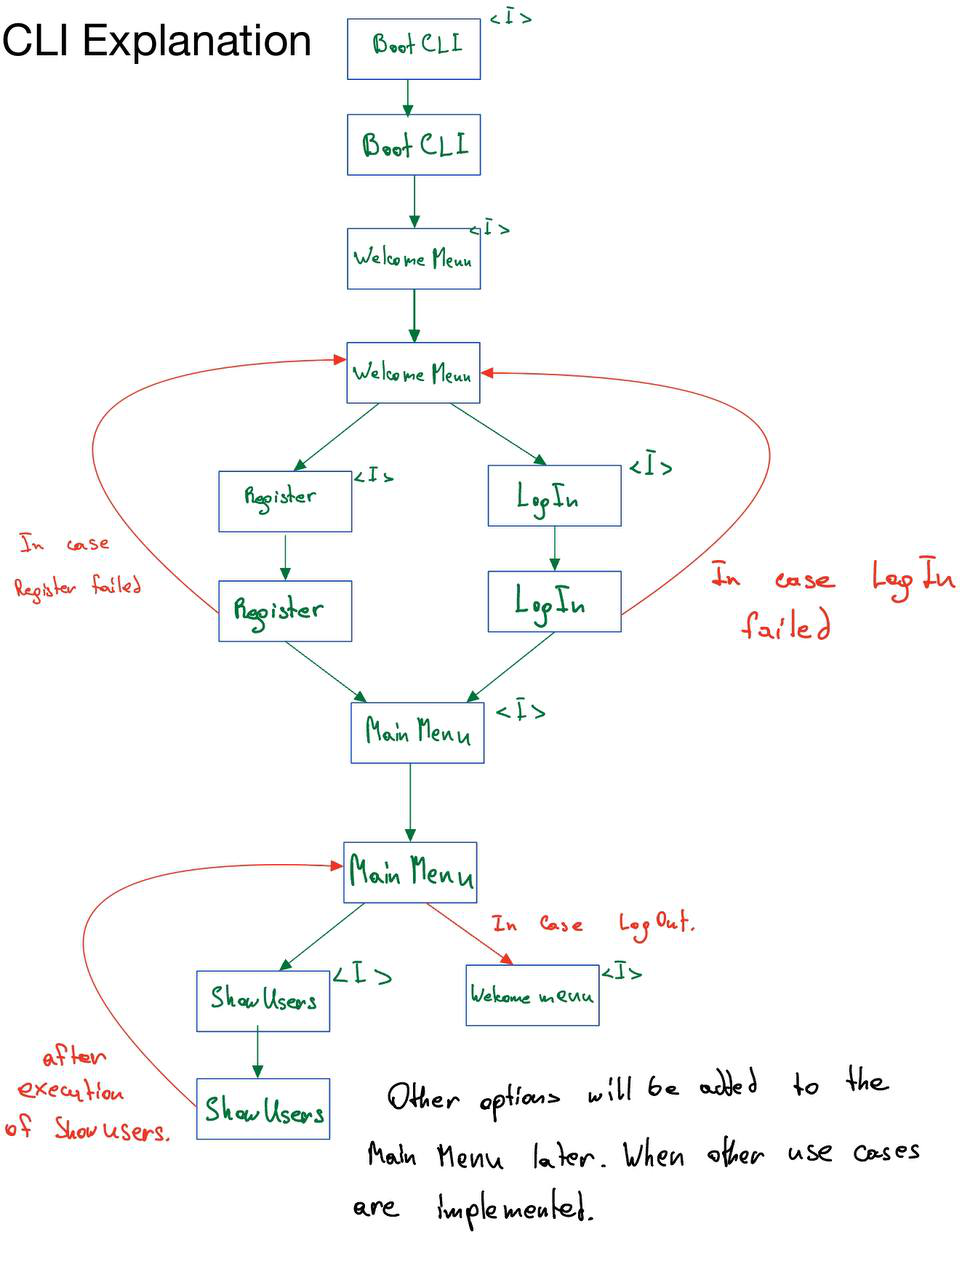 CLI Explanation
<I>
Boot CLI
Boot CLI
<I>
Welcome Menu
Welcome Menu
Register
<I>
LogIn
<I>
In case
Register failed
Register
LogIn
In case LogIn
failed
Main Menu
<I>
Main Menu
In case LogOut.
ShowUsers
<I>
Welcome menu
<I>
after
execution
of Show users.
ShowUsers
Other options will be added to the
Main Menu later. When other use cases
are implemented.